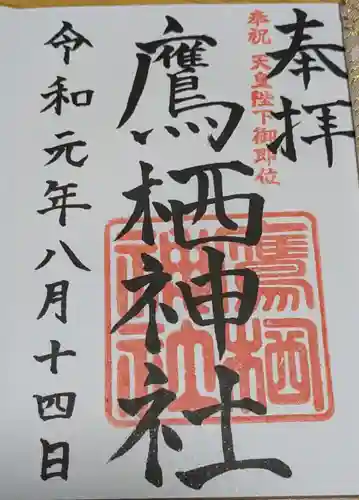 奉拝
奉祝 天皇陛下御即位
鷹栖神社
鷹栖神社
令和元年八月十四日